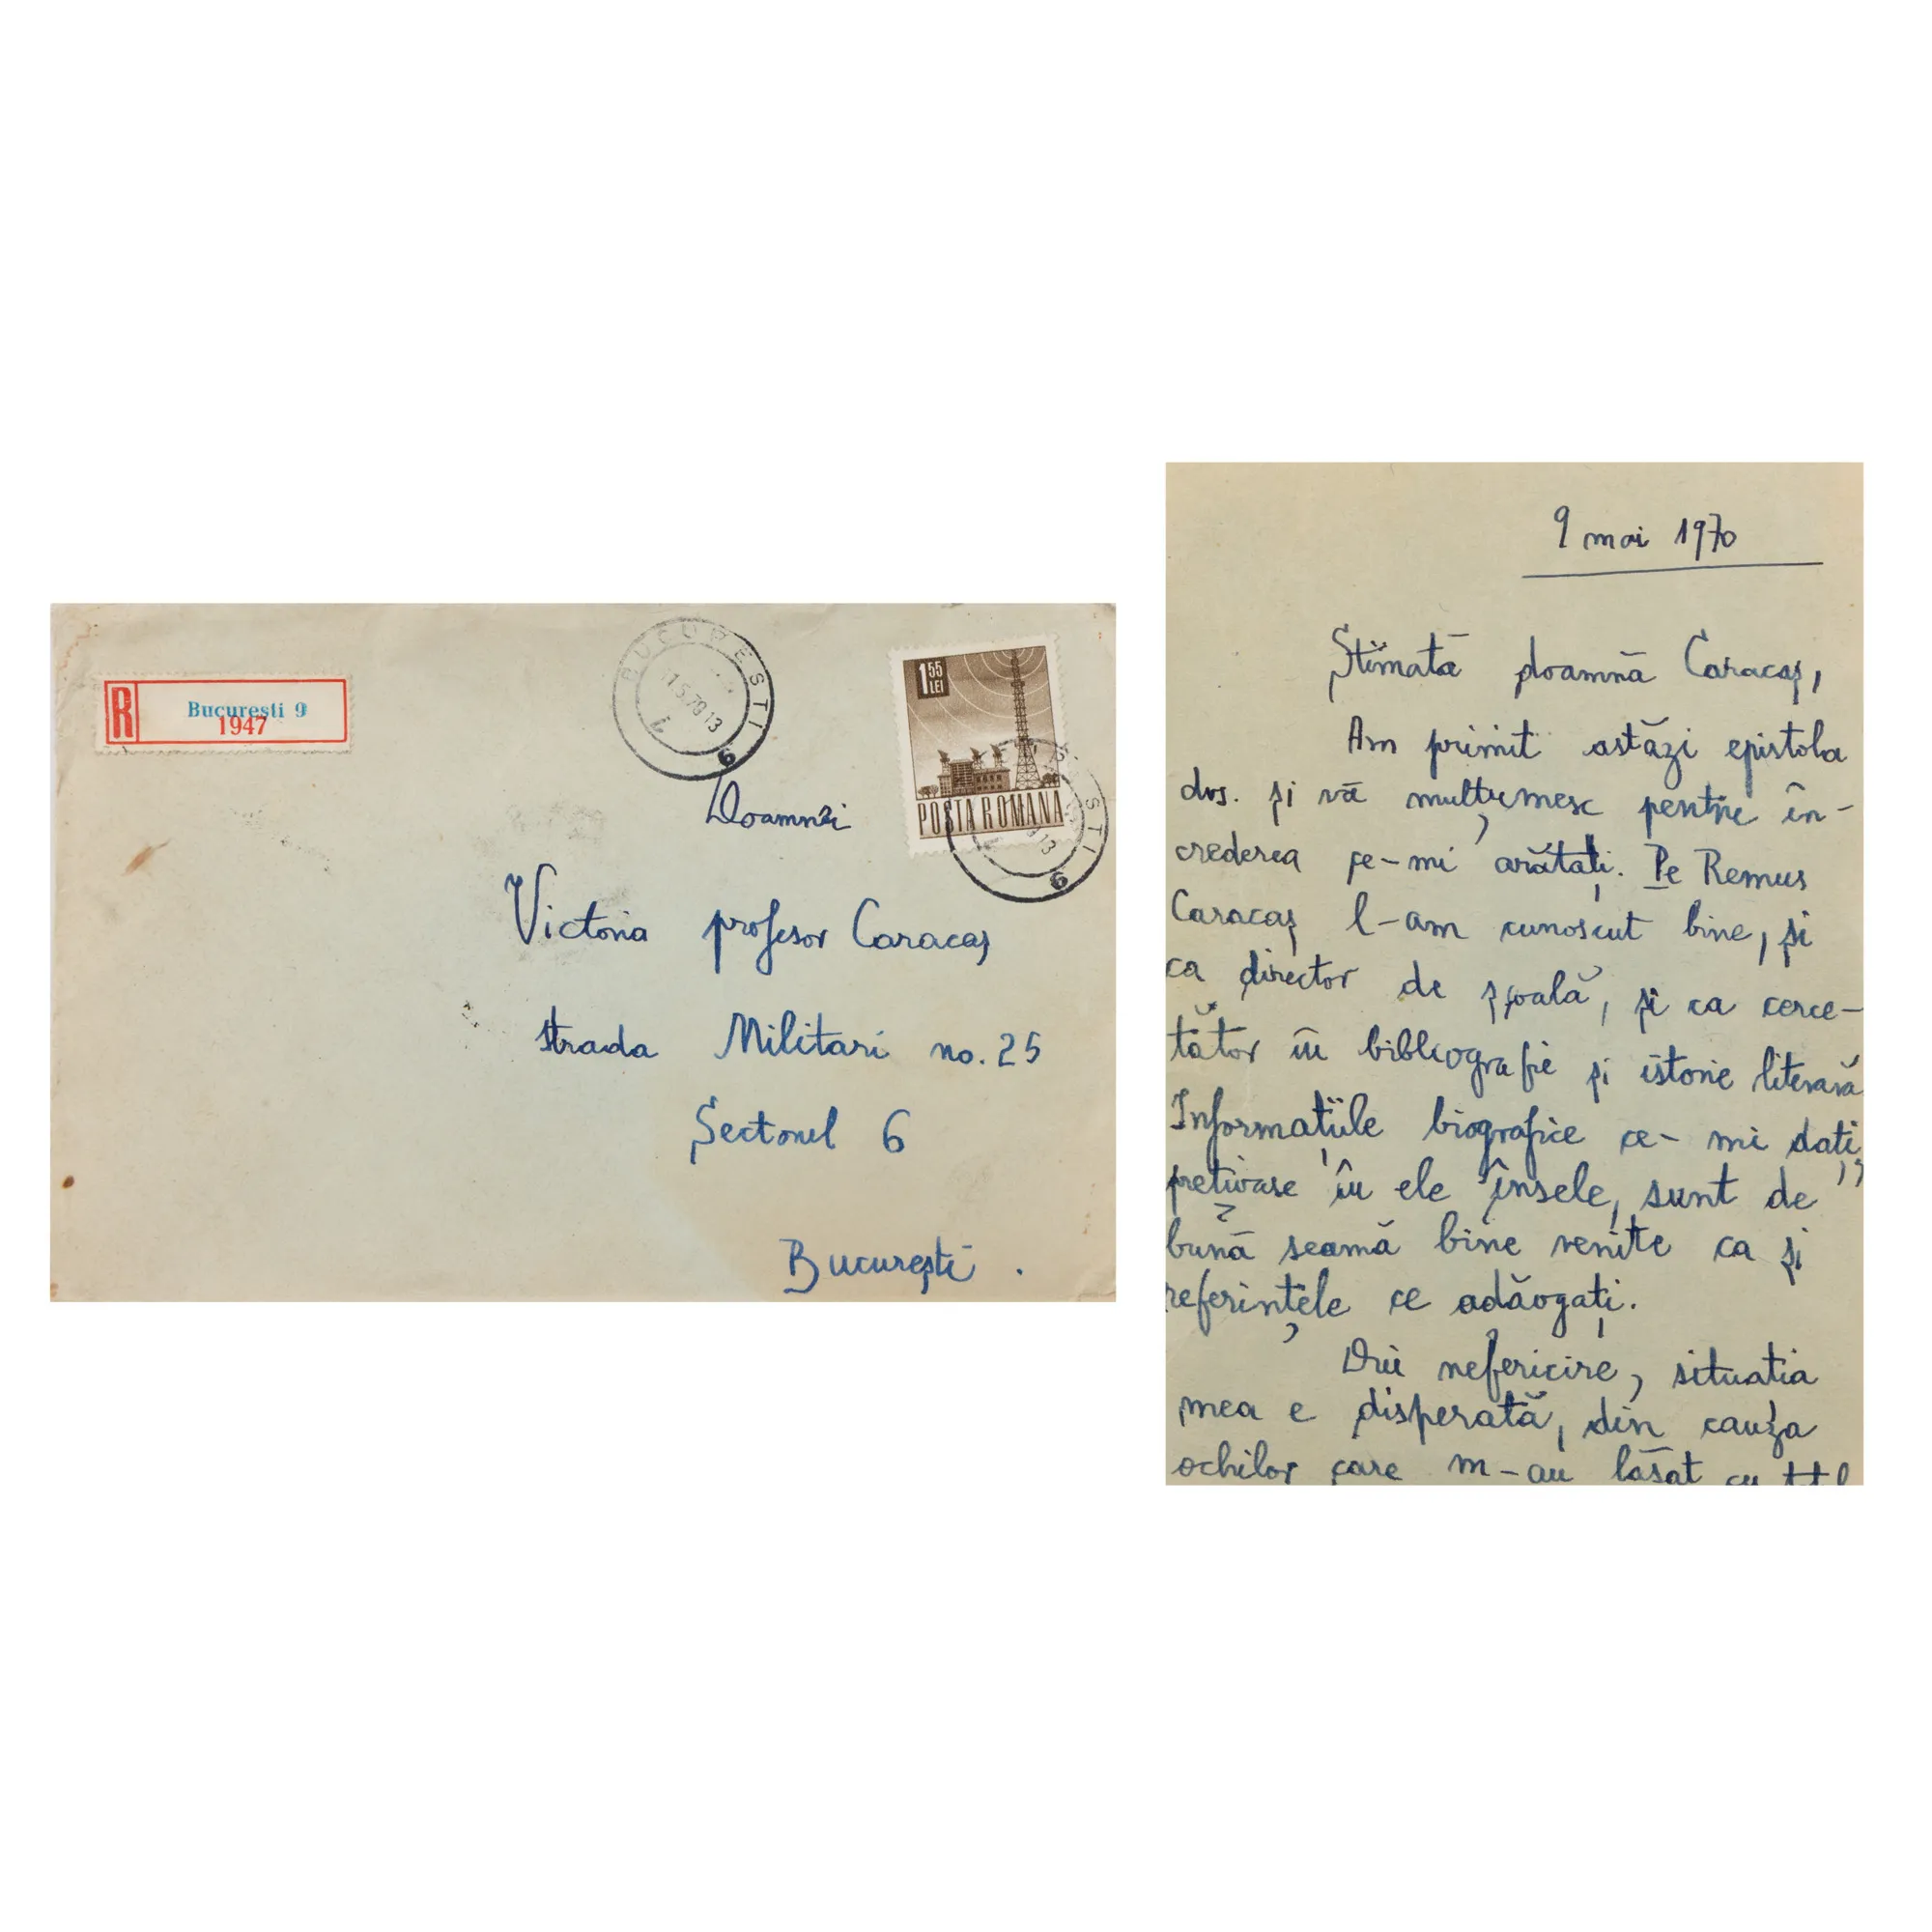 R
București 9
1947
BUCUREȘTI
6
1 55
LEI
POSTA ROMANA
13
6
Doamnei
Victoria profesor Caracaș
strada Militari no. 25
Sectorul 6
București .
9 mai 1970
Stimată doamnă Caracaș,
Am primit astăzi epistola
dvs. și vă mulțumesc pentru în-
crederea ce-mi arătați. Pe Remus
Caracaș l-am cunoscut bine, și
ca director de școală, și ca cerce-
tător în bibliografie și istorie literară
Informațiile biografice ce-mi dați,
prețioase în ele însele, sunt de
bună seamă bine venite ca și
referințele ce adăogați.
Din nefericire, situația
mea e disperată, din cauza
ochilor care m-au lăsat cu